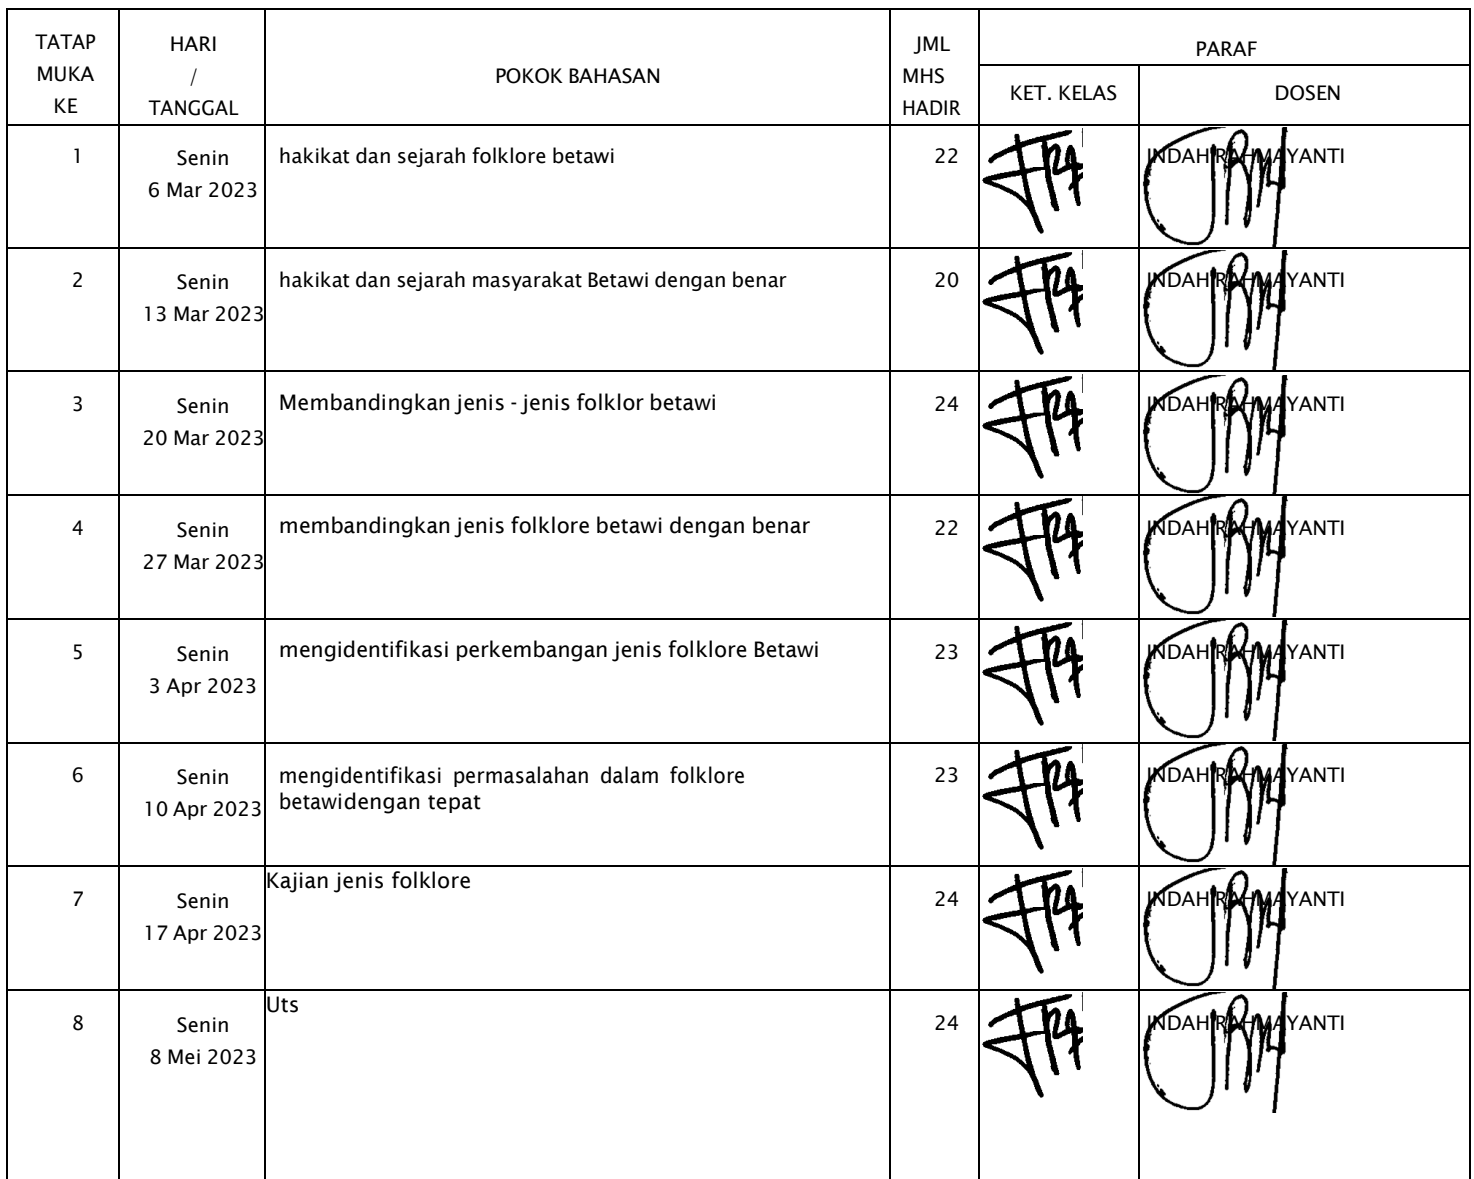 TATAP MUKA KE
HARI / TANGGAL
POKOK BAHASAN
JML MHS HADIR
PARAF
KET. KELAS
DOSEN
1
Senin
6 Mar 2023
hakikat dan sejarah folklore betawi
22
INDAH RAHMAYANTI
2
Senin
13 Mar 2023
hakikat dan sejarah masyarakat Betawi dengan benar
20
INDAH RAHMAYANTI
3
Senin
20 Mar 2023
Membandingkan jenis - jenis folklor betawi
24
INDAH RAHMAYANTI
4
Senin
27 Mar 2023
membandingkan jenis folklore betawi dengan benar
22
INDAH RAHMAYANTI
5
Senin
3 Apr 2023
mengidentifikasi perkembangan jenis folklore Betawi
23
INDAH RAHMAYANTI
6
Senin
10 Apr 2023
mengidentifikasi permasalahan dalam folklore
betawidengan tepat
23
INDAH RAHMAYANTI
7
Senin
17 Apr 2023
Kajian jenis folklore
24
INDAH RAHMAYANTI
8
Senin
8 Mei 2023
Uts
24
INDAH RAHMAYANTI